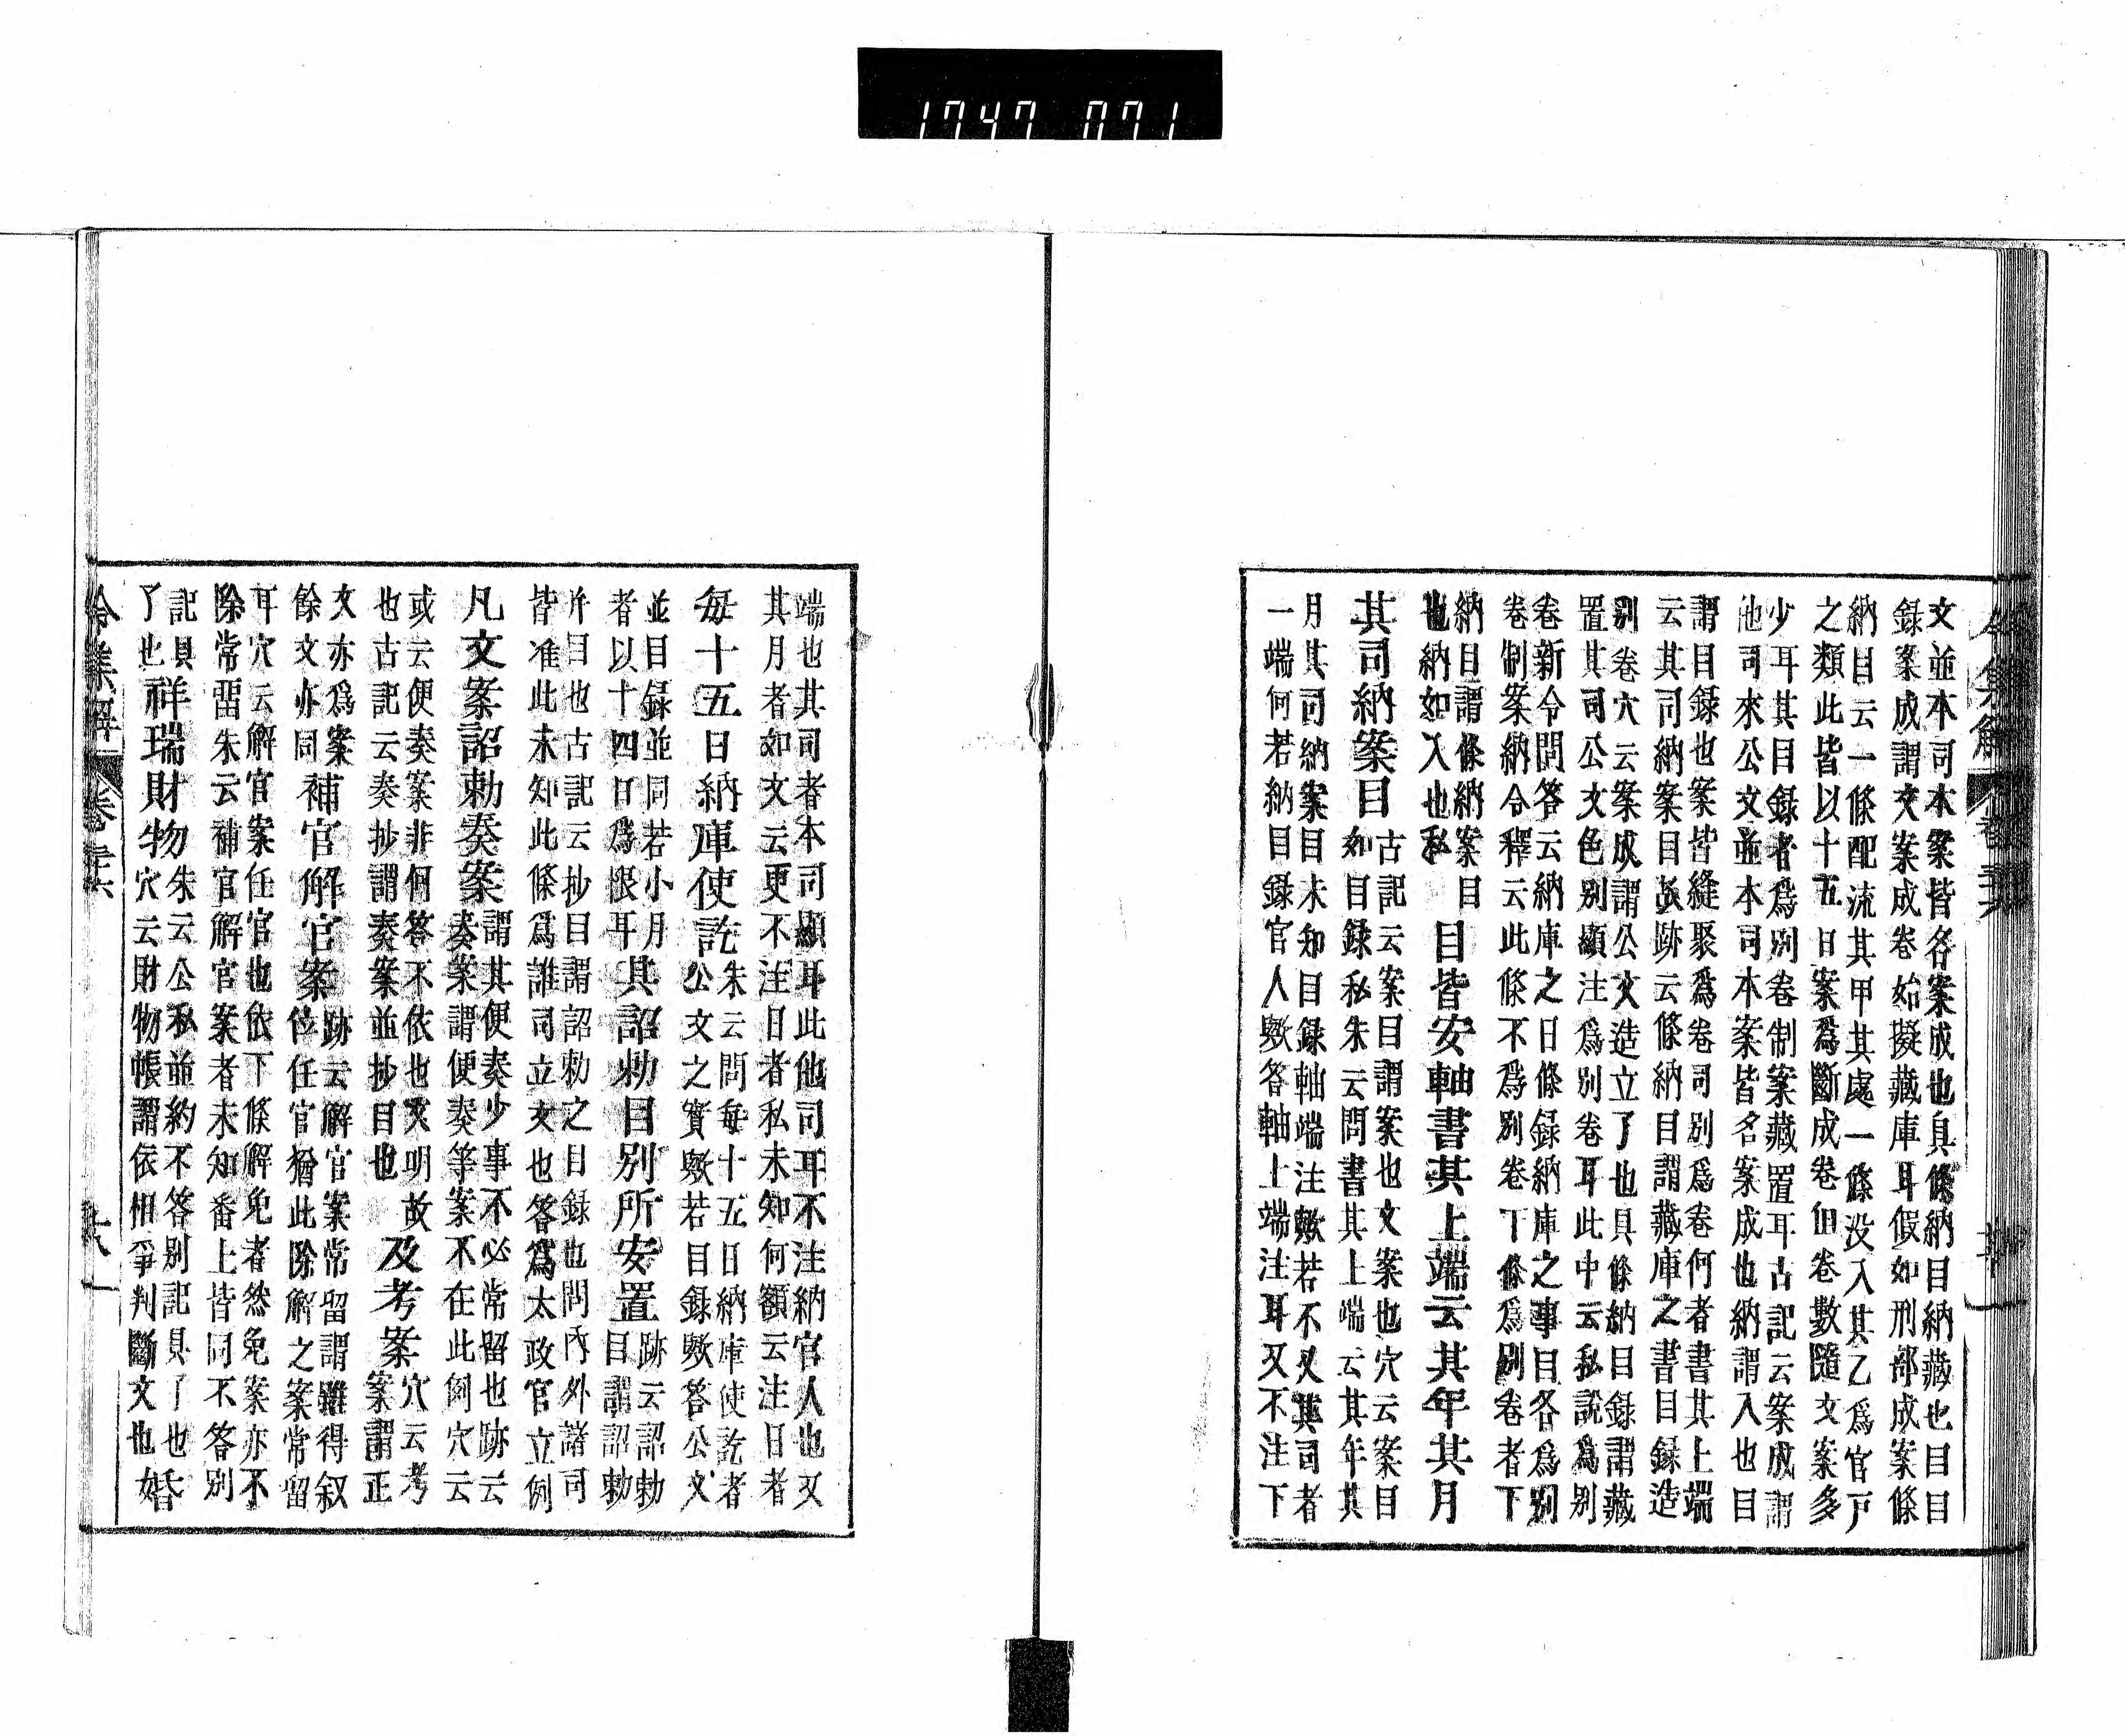 1747 071
文並本司本案皆各案成也具條納目納藏也目目
録案成謂文案成卷始擬藏庫耳假如刑部成案條
納目云一條配流其甲其處一條没入其乙爲官戸
之類此皆以十五日案爲斷成卷但卷數隨文案多
少耳其目録者爲別卷制案藏置耳古記云案成謂
他司來公文並本司本案皆名案成也納謂入也目
謂目録也案皆縫聚爲卷司別爲卷何者書其上端
云其司納案目跡云條納目謂藏庫之書目録造
別卷穴云案成謂公文造立了也具條納目録謂藏
置其司公文色別顯注爲別卷耳此中云私説爲別
卷新令問答云納庫之日條録納庫之事目各爲別
卷制案納令釋云此條不爲別卷下條爲別卷者下
納目謂條納案目
也納如入也私
目皆安軸書其上端云其年其月
其司納案目
古記云案目謂案也文案也穴云案目
如目録私朱云問書其上端云其年其
月其司納案目未知目録軸端注歟若不又其司者
一端何若納目録官人歟答軸上端注耳又不注下
端也其司者本司顯耳此他司耳不注納官人也又
其月者如文云更不注日者私未知何額云注日者
毎十五日納庫使訖
朱云問毎十五日納庫使訖者
公文之實歟若目録歟答公文
並目録並同若小月
者以十四日爲限耳
其詔勅目別所安置
跡云詔勅
目謂詔勅
片目也古記云抄目謂詔勅之目録也問内外諸司
皆准此未知此條爲誰司立文也答爲太政官立例
凡文案詔勅奏案
謂其便奏少事不必常留也跡云
奏案謂便奏等案不在此例穴云
或云便奏案非何答不依也文明故
也古記云奏抄謂奏案並抄目也
及考案
穴云考
案謂正
文亦爲案
餘文亦同
補官解官案
跡云解官案常留謂雖得叙
位任官猶此除解之案常留
耳穴云解官案任官也依下條解免者然免案亦不
除常留朱云補官解官案者未知番上皆同不答別
記具
了也
祥瑞財物
朱云公私並約不答別記具了也
穴云財物帳謂依相爭判斷文也
婚
令集解
卷三十六
十八